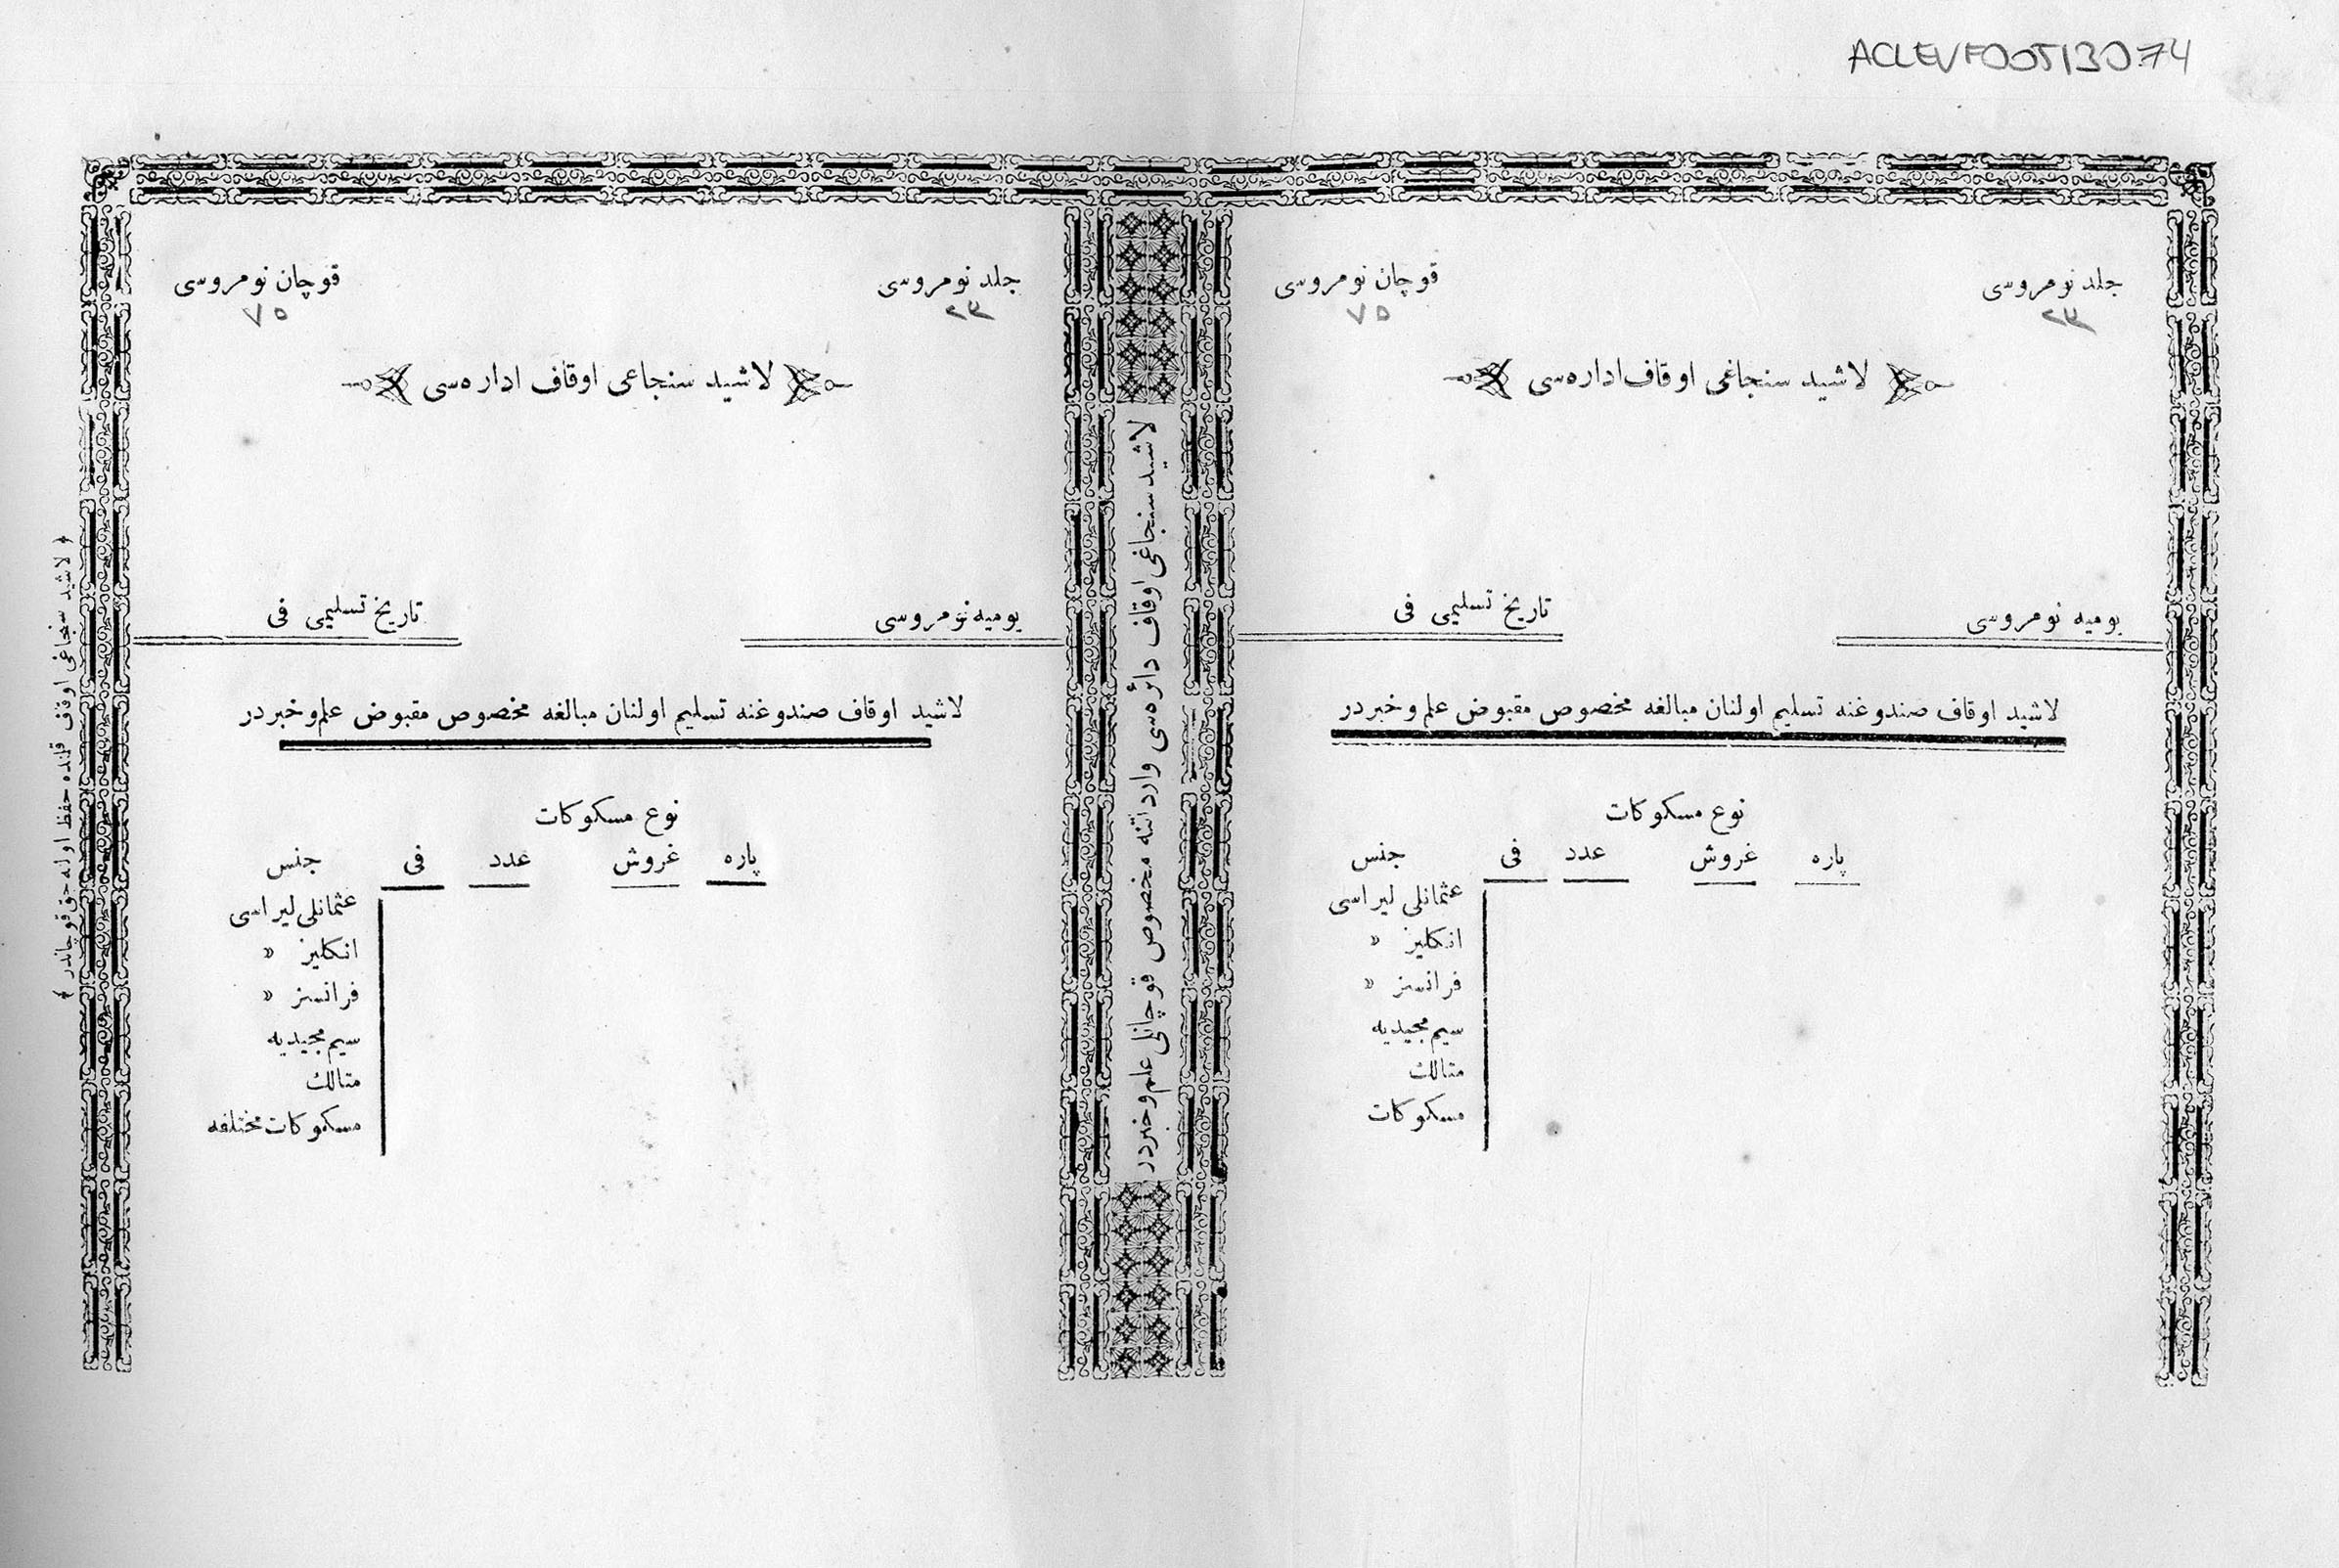 ACLEVF00513074
جلد نومروسی
٢٣
قوچان نومروسی
٧٥
لاشيد سنجاغی اوقاف اداره‌سی
يوميه نومروسی
تاريخ تسليمی فی
لاشيد اوقاف صندوغنه تسليم اولنان مبالغه مخصوص مقبوض علم و خبردر
نوع مسكوكات
جنس فی عدد غروش پاره
عثمانلی ليراسی
انكليز »
فرانسز »
سيم مجيديه
متالك
مسكوكات
لاشيد سنجاغی اوقاف دائره‌سی وارداتنه مخصوص قوچانلی علم و خبردر
جلد نومروسی
٢٣
قوچان نومروسی
٧٥
لاشيد سنجاعی اوقاف اداره‌سی
يوميه نومروسی
تاريخ تسليمی فی
لاشيد اوقاف صندوغنه تسليم اولنان مبالغه مخصوص مقبوض علم و خبردر
نوع مسكوكات
جنس فی عدد غروش پاره
عثمانلی ليراسی
انكليز »
فرانسز »
سيم مجيديه
متالك
مسكوكات مختلفه
﴿ لاشيد سنجاغی اوقاف حفظ اوله جق قوچاندر ﴾